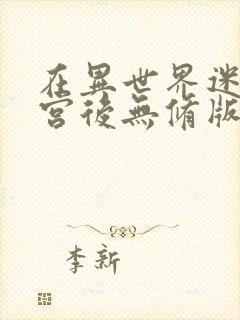 在異世界迷
宮後無脩版
李新